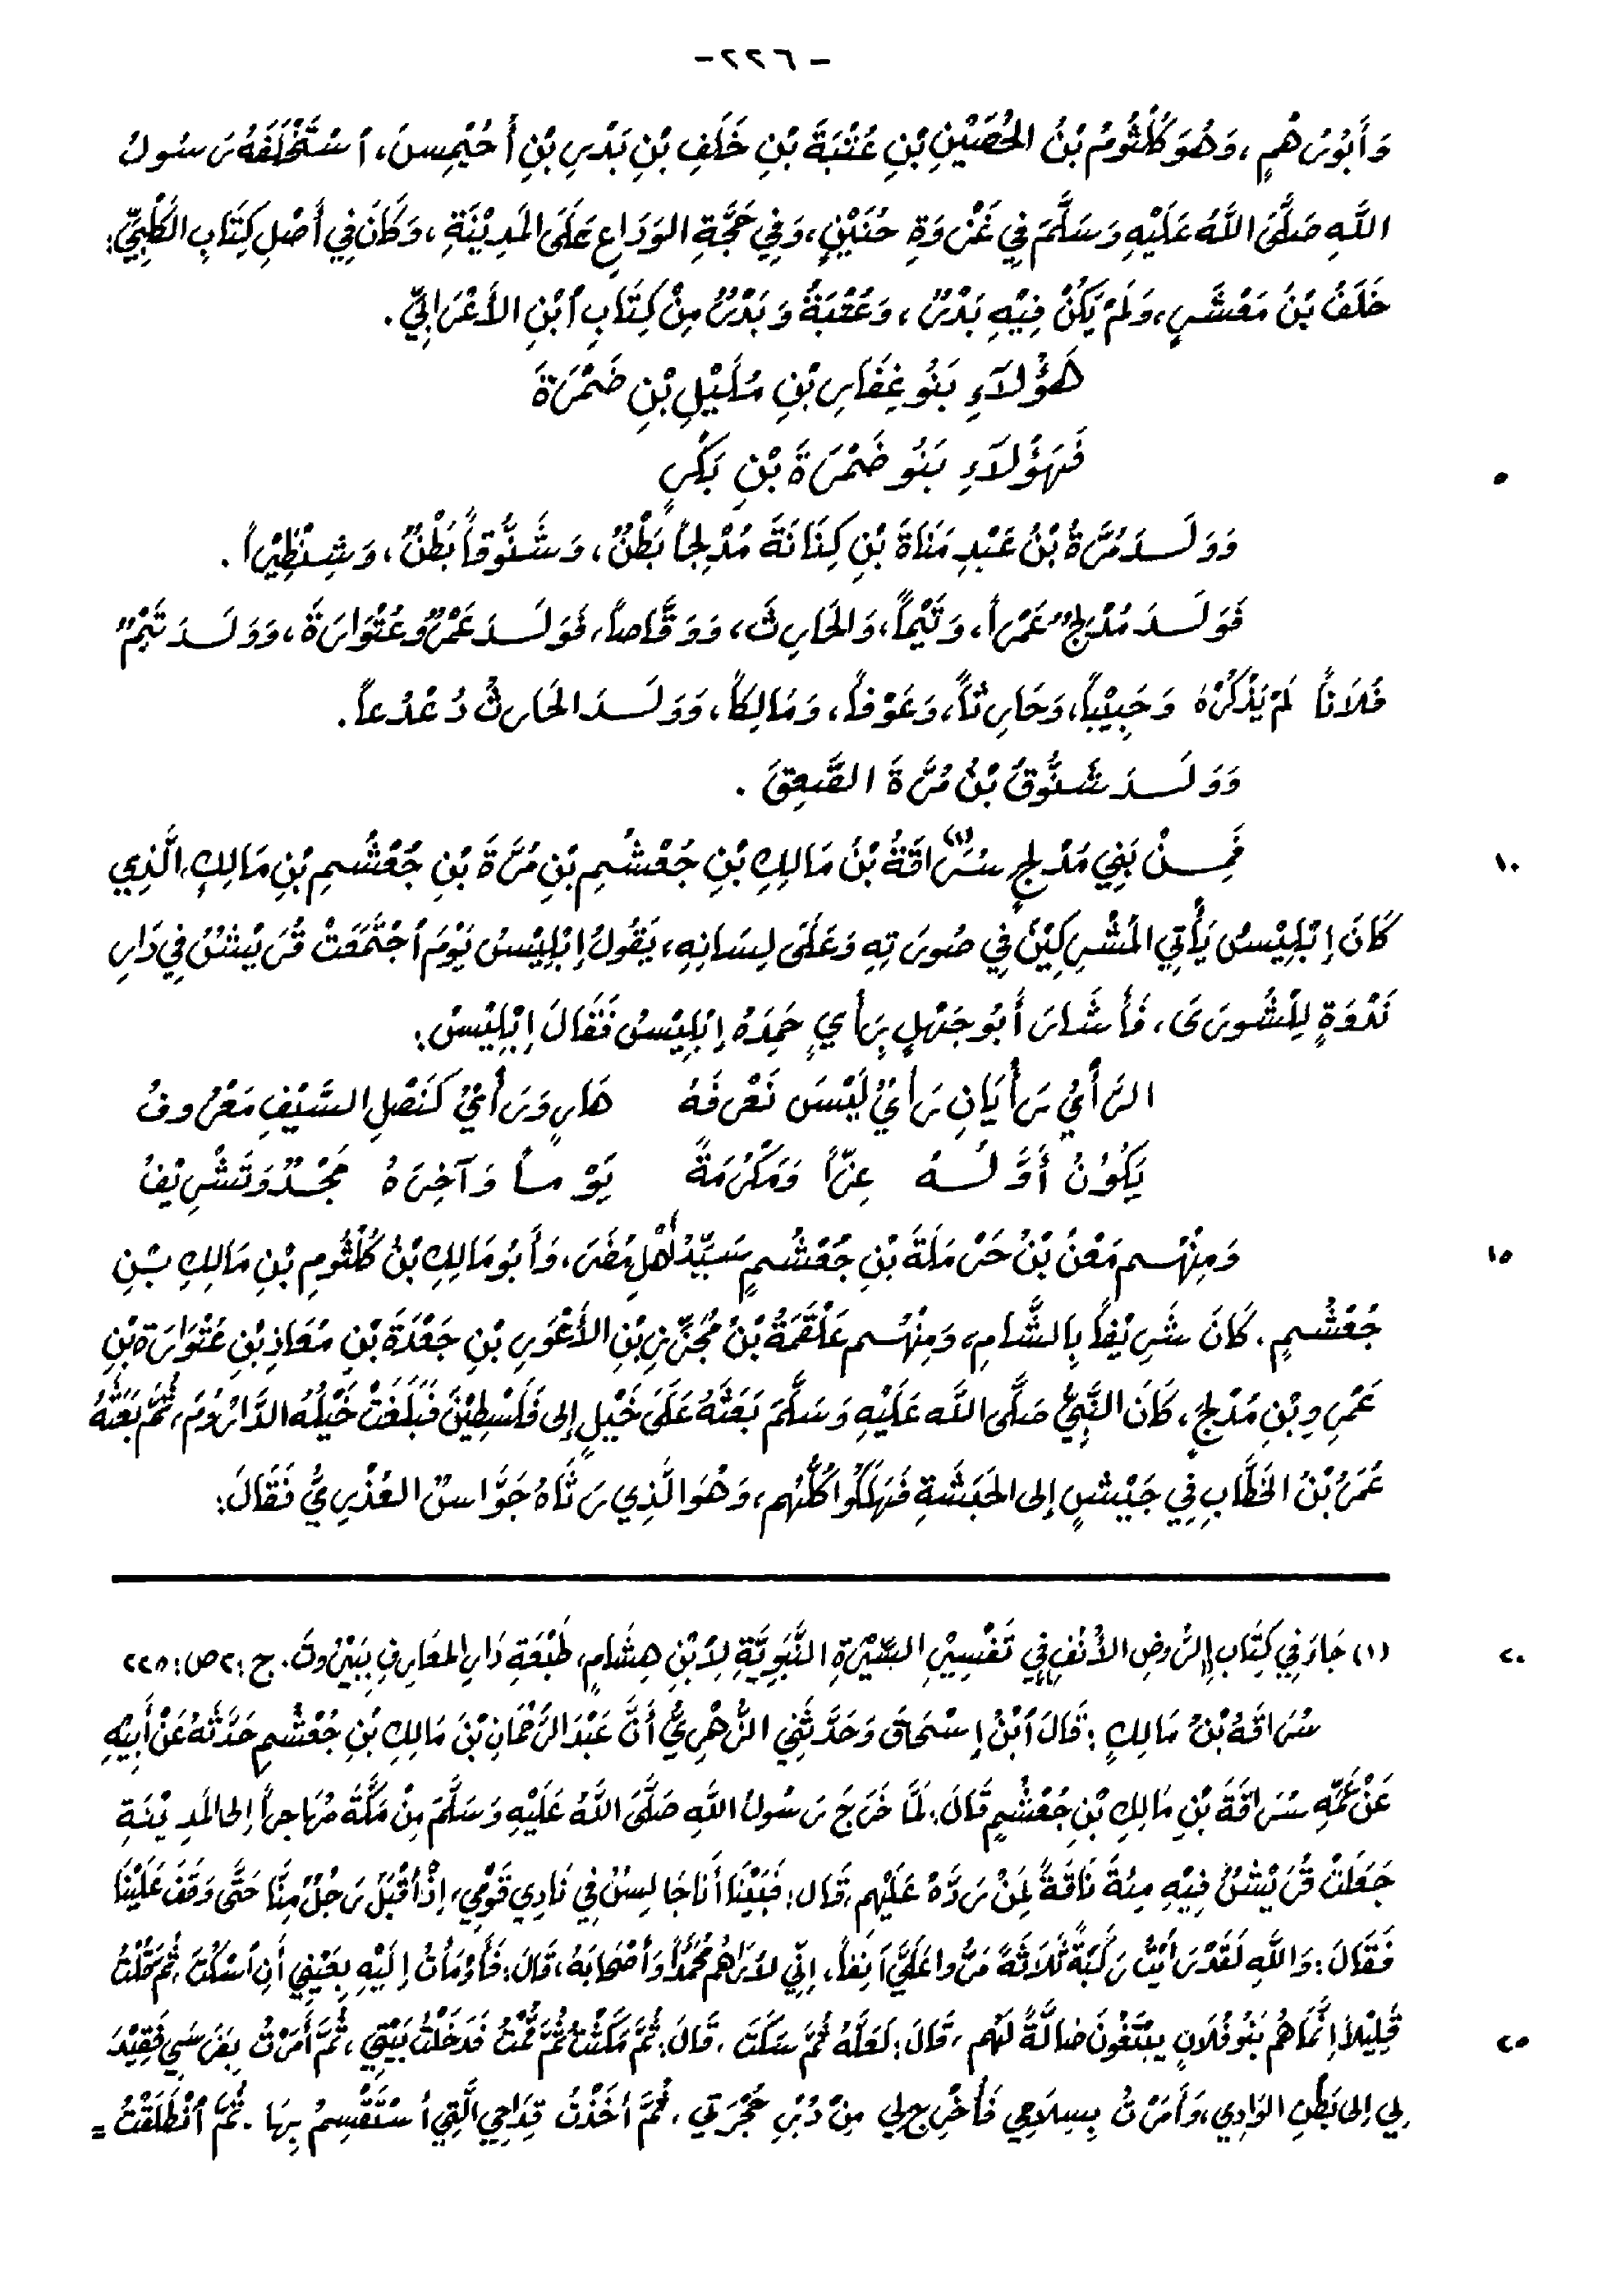 - ٢٢٦ -
وَأَبُو رُهْمٍ، وَهُوَ كُلْثُومُ بْنُ الحُصَيْنِ بْنِ عُتْبَةَ بْنِ خَلَفِ بْنِ بَدْرِ بْنِ أُحَيْمِسَ، ٱسْتَخْلَفَهُ رَسُولُ
اللَّهِ صَلَّى اللَّهُ عَلَيْهِ وَسَلَّمَ فِي غَزْوَةِ حُنَيْنٍ، وَفِي حَجَّةِ الوَدَاعِ عَلَى المَدِيْنَةِ، وَكَانَ فِي أَصْلِ كِتَابِ الكَلْبِيِّ:
خَلَفُ بْنُ مَعْشَرٍ، وَلَمْ يَكُنْ فِيْهِ بَدْرٌ، وَعُتْبَةُ وَبَدْرٌ مِنْ كِتَابِ ٱبْنِ الأَعْرَابِيِّ.
هَؤُلاَءِ بَنُو غِفَارِ بْنِ مُلَيْلِ بْنِ ضَمْرَةَ
فَهَؤُلاَءِ بَنُو ضَمْرَةَ بْنِ بَكْرٍ
٥
وَوَلَدَ مُرَّةُ بْنُ عَبْدِ مَنَاةَ بْنِ كِنَانَةَ مُدْلِجاً بَطْنٌ، وَشَنُّوقاً بَطْنٌ، وَشِنْظِيْراً.
فَوَلَدَ مُدْلِجٌ عَمْراً، وَتَيْماً، وَالحَارِثَ، وَوَقَّاصاً، فَوَلَدَ عَمْرٌو عُتْوَارَةَ، وَوَلَدَ تَيْمٌ
فُلَاناً لَمْ يَذْكُرْهُ وَحَبِيْباً، وَحَارِثاً، وَعَوْفاً، وَمَالِكاً، وَوَلَدَ الحَارِثُ دُعْدُعاً.
وَوَلَدَ شَنُّوقُ بْنُ مُرَّةَ الصَّعِقَ.
فَمِنْ بَنِي مُدْلِجٍ سُرَاقَةُ (١) بْنُ مَالِكِ بْنِ جُعْشُمِ بْنِ مُرَّةَ بْنِ جُعْشُمِ بْنِ مَالِكٍ، الَّذِي
١٠
كَانَ إِبْلِيْسُ يَأْتِي المُشْرِكِيْنَ فِي صُورَتِهِ وَعَلَى لِسَانِهِ، يَقُولُ إِبْلِيْسُ يَوْمَ ٱجْتَمَعَتْ قُرَيْشٌ فِي دَارِ
نَدْوَةٍ لِلشُّورَى، فَأَشَارَ أَبُو جَهْلٍ بِرَأْيٍ حَمِدَهُ إِبْلِيْسُ فَقَالَ إِبْلِيْسُ:
الرَّأْيُ رَأْيَانِ رَأْيٌ لَيْسَ نَعْرِفُهُ هَارٍ وَرَأْيٌ كَنَصْلِ السَّيْفِ مَعْرُوفُ
يَكُوْنُ أَوَّلُهُ عِزّاً وَمَكْرُمَةً يَوْماً وَآخِرُهُ مَجْدٌ وَتَشْرِيْفُ
وَمِنْهُم مَعْنُ بْنُ حَرْمَلَةَ بْنِ جُعْشُمٍ سَيِّدُ أَهْلِ مِصْرَ، وَأَبُو مَالِكِ بْنُ كُلْثُومِ بْنِ مَالِكِ بْنِ
١٥
جُعْشُمٍ. كَانَ شَرِيْفاً بِالشَّامِ، وَمِنْهُم عَلْقَمَةُ بْنُ مُجَزِّزِ بْنِ الأَعْوَرِ بْنِ جَعْدَةَ بْنِ مُعَاذِ بْنِ عُتْوَارَةَ بْنِ
عَمْرِو بْنِ مُدْلِجٍ، كَانَ النَّبِيُّ صَلَّى اللَّه عَلَيْهِ وَسَلَّمَ بَعَثَهُ عَلَى خَيْلٍ إِلى فَلَسْطِيْنَ فَبَلَغَتْ خَيْلُهُ الدَّارُوْمَ، ثُمَّ بَعَثَهُ
عُمَرُ بْنُ الخَطَّابِ فِي جَيْشٍ إِلى الحَبَشَةِ فَهَلَكُوا كُلُّهُم، وَهُوَ الَّذِي رَثَاهُ جَوَّاسٌ العُذْرِيُّ فَقَالَ:
(١) جَاءَ فِي كِتَابِ الرَّوضِ الأُنُفِ فِي تَفْسِيْرِ السِّيْرَةِ النَّبَوِيَّةِ لِٱبْنِ هِشَامٍ، طَبْعَةِ دَارِ المَعَارِفِ بِبَيْرُوتَ. ج: ٢ ص: ٢٢٥
٢٠
سُرَاقَةُ بْنُ مَالِكٍ: قَالَ ٱبْنُ إِسْحَاقَ وَحَدَّثَنِي الزُّهْرِيُّ أَنَّ عَبْدَ الرَّحْمَانِ بْنَ مَالِكِ بْنِ جُعْشُمٍ حَدَّثَهُ عَنْ أَبِيْهِ
عَنْ عَمِّهِ سُرَاقَةَ بْنِ مَالِكِ بْنِ جُعْشُمٍ قَالَ: لَمَّا خَرَجَ رَسُولُ اللَّهِ صَلَّى اللَّهُ عَلَيْهِ وَسَلَّمَ مِنْ مَكَّةَ مُهَاجِراً إِلى المَدِيْنَةِ
جَعَلَتْ قُرَيْشٌ فِيْهِ مِئَةَ نَاقَةً لِمَنْ رَدَّهُ عَلَيْهِم، قَالَ: فَبَيْنَا أَنَا جَالِسٌ فِي نَادِي قَوْمِي، إِذْ أَقْبَلَ رَجُلٌ مِنَّا حَتَّى وَقَفَ عَلَيْنَا
فَقَالَ: وَاللَّهِ لَقَدْ رَأَيْتُ رَكَبَةً ثَلَاثَةً مَرُّوا عَلَيَّ آنِفاً، إِنِّي لَأَرَاهُم مُحَمَّداً وَأَصْحَابَهُ، قَالَ: فَأَوْمَأْتُ إِلَيْهِ بِعَيْنِي أَنِ ٱسْكُتْ، ثُمَّ قُلْتُ
قَلِيْلاً إِنَّمَا هُم بَنُو فُلَانٍ يَبْتَغُونَ ضَالَّةً لَهُم، قَالَ: لَعَلَّهُ ثُمَّ سَكَتَ، قَالَ: ثُمَّ مَكَثْتُ ثُمَّ قُمْتُ فَدَخَلْتُ بَيْتِي، ثُمَّ أَمَرْتُ بِفَرَسِي فَقِيْدَ
٢٥
لِي إِلى بَطْنِ الوَادِي، وَأَمَرْتُ بِسِلَاحِي فَأُخْرِجَ لِي مِنْ دُبُرِ حُجْرَتِي، ثُمَّ أَخَذْتُ قِدَاحِي الَّتِي أَسْتَقْسِمُ بِهَا. ثُمَّ ٱنْطَلَقْتُ =